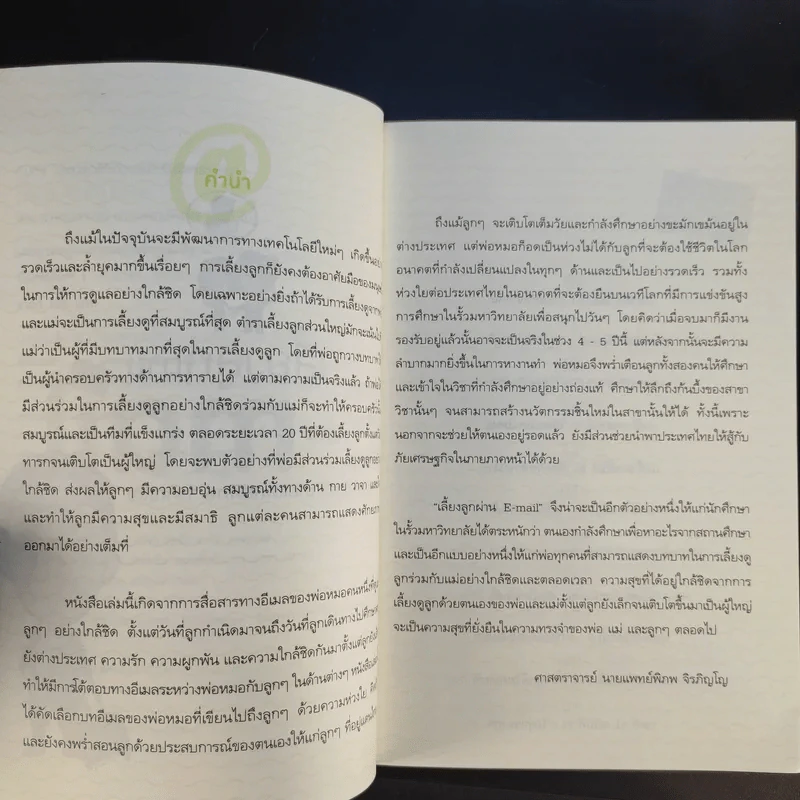 คำนำ
ถึงแม้ในปัจจุบันจะมีพัฒนาการทางเทคโนโลยีใหม่ๆ เกิดขึ้นอย่าง
รวดเร็วและล้ำยุคมากขึ้นเรื่อยๆ การเลี้ยงลูกก็ยังคงต้องอาศัยมือของมนุษย์
ในการให้การดูแลอย่างใกล้ชิด โดยเฉพาะอย่างยิ่งถ้าได้รับการเลี้ยงดูจากพ่อ
และแม่จะเป็นการเลี้ยงดูที่สมบูรณ์ที่สุด ตำราเลี้ยงลูกส่วนใหญ่มักจะเน้น
แม่ว่าเป็นผู้ที่มีบทบาทมากที่สุดในการเลี้ยงดูลูก โดยที่พ่อถูกวางบทบาท
เป็นผู้นำครอบครัวทางด้านการหารายได้ แต่ตามความเป็นจริงแล้ว ถ้าพ่อ
มีส่วนร่วมในการเลี้ยงดูลูกอย่างใกล้ชิดร่วมกับแม่ก็จะทำให้ครอบครัว
สมบูรณ์และเป็นทีมที่แข็งแกร่ง ตลอดระยะเวลา 20 ปีที่ต้องเลี้ยงลูกตั้งแต่
ทารกจนเติบโตเป็นผู้ใหญ่ โดยจะพบตัวอย่างที่พ่อมีส่วนร่วมเลี้ยงดูลูกอย่าง
ใกล้ชิด ส่งผลให้ลูกๆ มีความอบอุ่น สมบูรณ์ทั้งทางด้าน กาย วาจา และ
และทำให้ลูกมีความสุขและมีสมาธิ ลูกแต่ละคนสามารถแสดงศักยภาพ
ออกมาได้อย่างเต็มที่
หนังสือเล่มนี้เกิดจากการสื่อสารทางอีเมลของพ่อหมอคนหนึ่งที่
ลูกๆ อย่างใกล้ชิด ตั้งแต่วันที่ลูกกำเนิดมาจนถึงวันที่ลูกเดินทางไปศึกษา
ยังต่างประเทศ ความรัก ความผูกพัน และความใกล้ชิดกันมาตั้งแต่ลูกยัง
ทำให้มีการโต้ตอบทางอีเมลระหว่างพ่อหมอกับลูกๆ ในด้านต่างๆ หนังสือ
ได้คัดเลือกบทอีเมลของพ่อหมอที่เขียนไปถึงลูกๆ ด้วยความห่วงใย
และยังคงพร่ำสอนลูกด้วยประสบการณ์ของตนเองให้แก่ลูกๆ ที่อยู่
ถึงแม้ลูกๆ จะเติบโตเต็มวัยและกำลังศึกษาอย่างขะมักเขม้นอยู่ใน
ต่างประเทศ แต่พ่อหมอก็อดเป็นห่วงไม่ได้กับลูกที่จะต้องใช้ชีวิตในโลก
อนาคตที่กำลังเปลี่ยนแปลงในทุกๆ ด้านและเป็นไปอย่างรวดเร็ว รวมทั้ง
ห่วงใยต่อประเทศไทยในอนาคตที่จะต้องยืนบนเวทีโลกที่มีการแข่งขันสูง
การศึกษาในรั้วมหาวิทยาลัยเพื่อสนุกไปวันๆ โดยคิดว่าเมื่อจบมาก็มีงาน
รองรับอยู่แล้วนั้นอาจจะเป็นจริงในช่วง 4 - 5 ปีนี้ แต่หลังจากนั้นจะมีความ
ลำบากมากยิ่งขึ้นในการหางานทำ พ่อหมอจึงพร่ำเตือนลูกทั้งสองคนให้ศึกษา
และเข้าใจในวิชาที่กำลังศึกษาอยู่อย่างถ่องแท้ ศึกษาให้ลึกถึงก้นบึ้งของสาขา
วิชานั้นๆ จนสามารถสร้างนวัตกรรมชิ้นใหม่ในสาขานั้นให้ได้ ทั้งนี้เพราะ
นอกจากจะช่วยให้ตนเองอยู่รอดแล้ว ยังมีส่วนช่วยนำพาประเทศไทยให้สู้กับ
ภัยเศรษฐกิจในภายภาคหน้าได้ด้วย
“เลี้ยงลูกผ่าน E-mail” จึงน่าจะเป็นอีกตัวอย่างหนึ่งให้แก่นักศึกษา
ในรั้วมหาวิทยาลัยได้ตระหนักว่า ตนเองกำลังศึกษาเพื่อหาอะไรจากสถานศึกษา
และเป็นอีกแบบอย่างหนึ่งให้แก่พ่อทุกคนที่สามารถแสดงบทบาทในการเลี้ยงดู
ลูกร่วมกับแม่อย่างใกล้ชิดและตลอดเวลา ความสุขที่ได้อยู่ใกล้ชิดจากการ
เลี้ยงดูลูกด้วยตนเองของพ่อและแม่ตั้งแต่ลูกยังเล็กจนเติบโตขึ้นมาเป็นผู้ใหญ่
จะเป็นความสุขที่ยั่งยืนในความทรงจำของพ่อ แม่ และลูกๆ ตลอดไป
ศาสตราจารย์ นายแพทย์พิภพ จิรภิญโญ